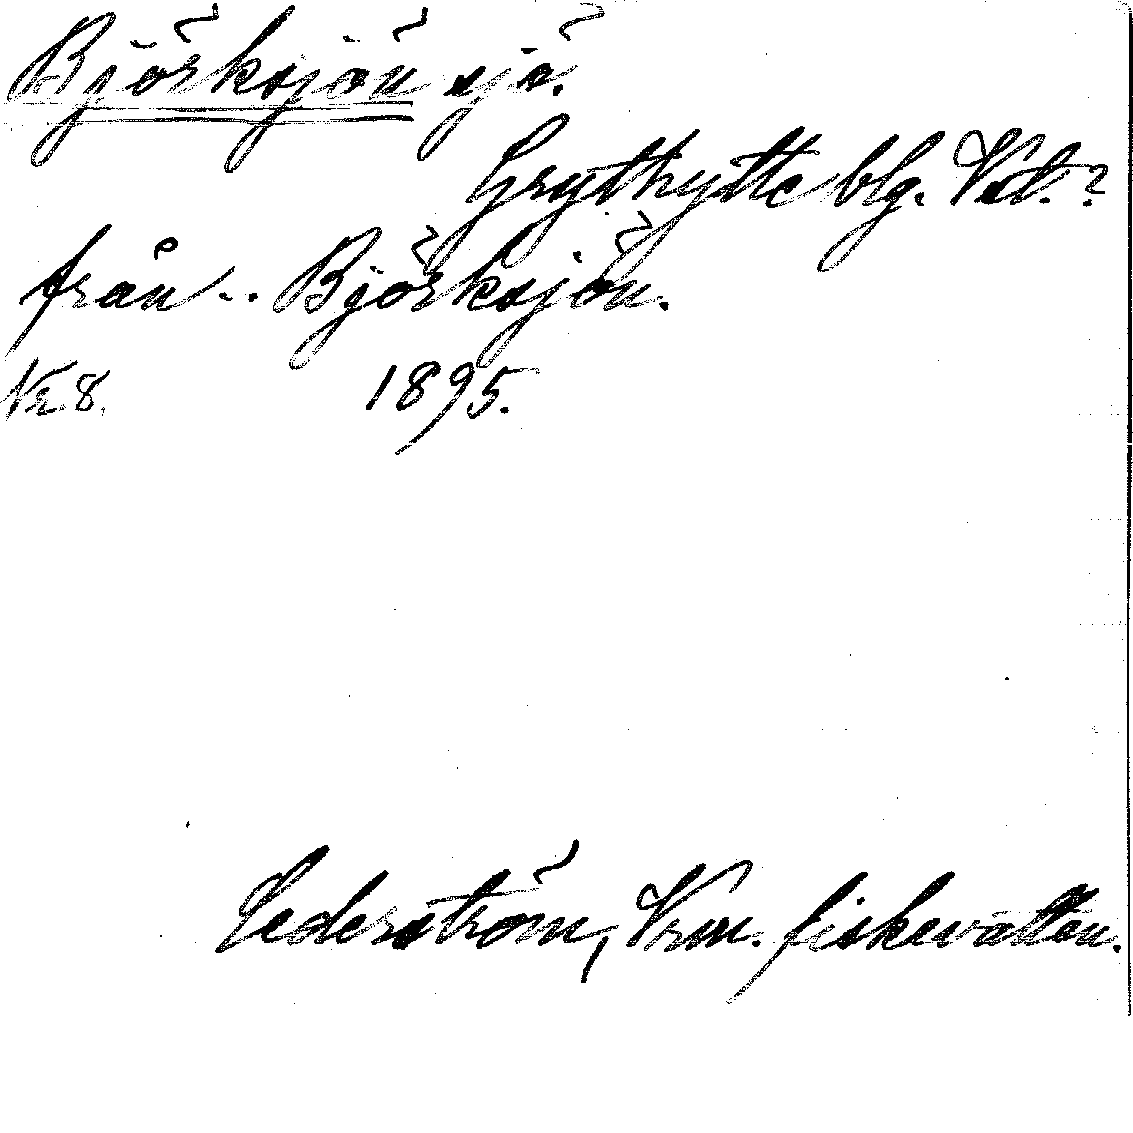 Björksjön sjö.
Grythytte blg. Vstl.?
från .. Björksjön.
Nr 8. 1895.
Cederström, Vrm. fiskevatten.